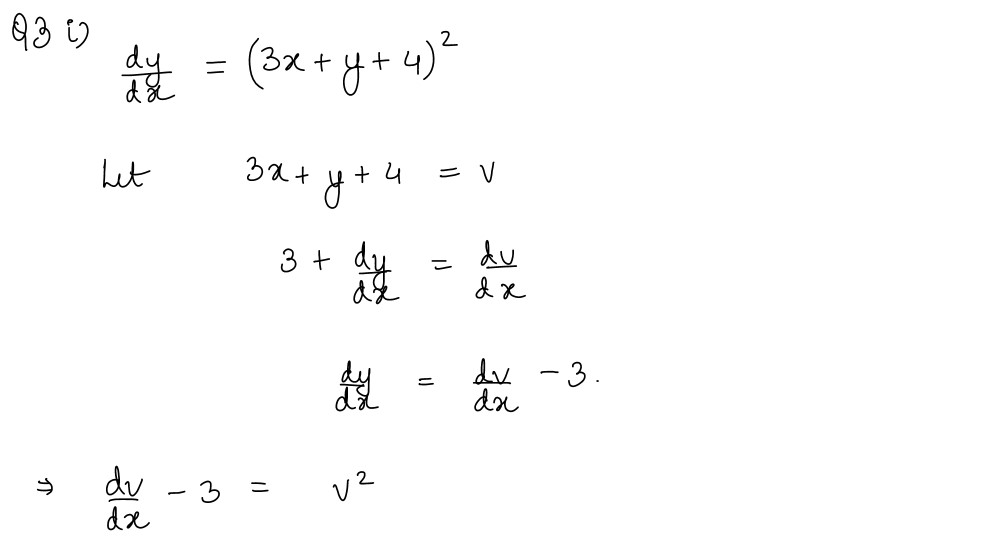 Q3 i)
dy/dx = (3x + y + 4)²
Let 3x + y + 4 = v
3 + dy/dx = dv/dx
dy/dx = dv/dx - 3.
⇒ dv/dx - 3 = v²